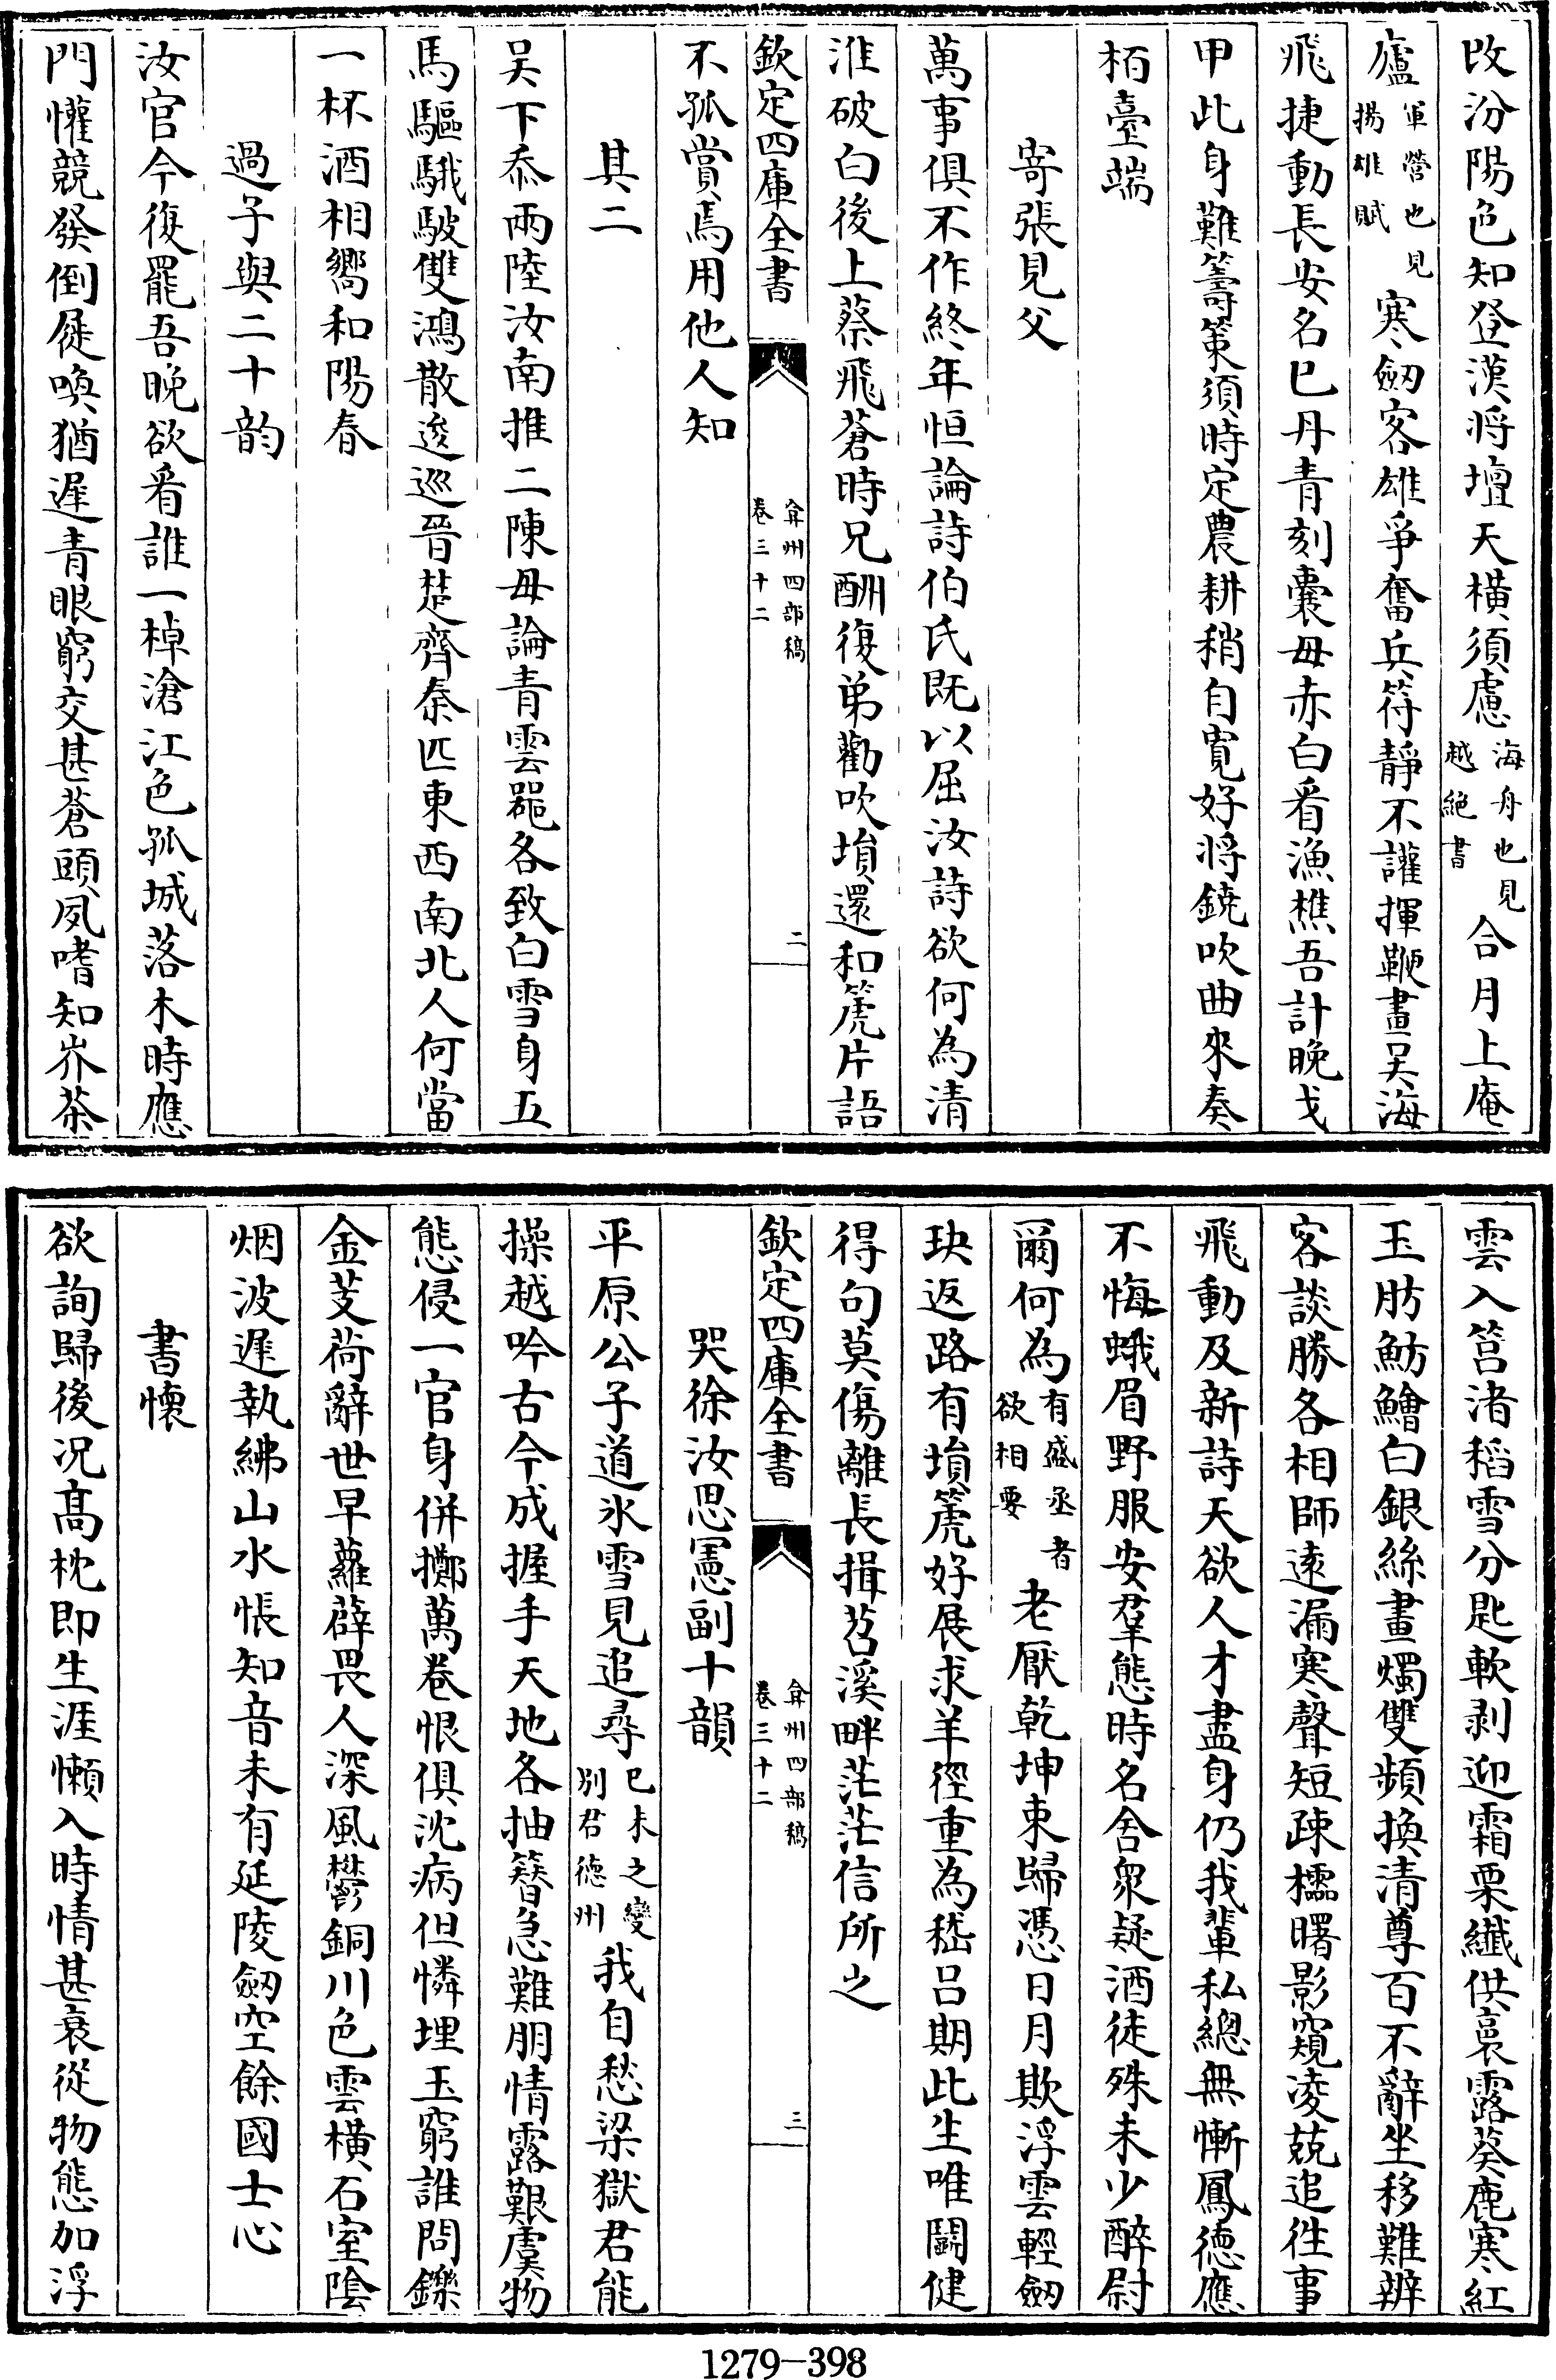 改汾陽色知登漢將壇天横須慮海舟也見越絶書合月上庵
廬軍營也見揚雄賦寒劒客雄爭奮兵符靜不讙揮鞭畫吴海
飛捷動長安名已丹青刻囊毋赤白看漁樵吾計晚戈
甲此身難籌策須時定農耕稍自寛好將鐃吹曲來奏
栢臺端
寄張見父
萬事俱不作終年恒論詩伯氏既以屈汝詩欲何為清
淮破白後上蔡飛蒼時兄酬復弟勸吹塤還和篪片語
欽定四庫全書
弇州四部稿
卷三十二
二
不孤賞焉用他人知
其二
吴下忝兩陸汝南推二陳毋論青雲器各致白雪身五
馬驅駊騀雙鴻散逡巡晉楚齊秦匹東西南北人何當
一杯酒相嚮和陽春
過子與二十韵
汝官今復罷吾晚欲看誰一棹滄江色孤城落木時應
門懽競發倒屣喚猶遲青眼窮交甚蒼頭夙嗜知岕茶
雲入筥渚稻雪分匙軟剥迎霜栗纖供裛露葵鹿寒紅
玉肪魴鱠白銀絲畫燭雙頻換清尊百不辭坐移難辨
客談勝各相師逺漏寒聲短疎櫺曙影窺凌兢追徃事
飛動及新詩天欲人才盡身仍我輩私總無慚鳳德應
不悔蛾眉野服安羣態時名舍衆疑酒徒殊未少醉尉
爾何為有盛丞者欲相要老厭乾坤束歸憑日月欺浮雲輕劒
玦返路有塤篪好展求羊徑重為嵇吕期此生唯鬭健
得句莫傷離長揖苕溪畔茫茫信所之
欽定四庫全書
弇州四部稿
卷三十二
三
哭徐汝思憲副十韻
平原公子道氷雪見追尋已未之變別君德州我自愁梁獄君能
操越吟古今成握手天地各抽簪急難朋情露艱虞物
態侵一官身併擲萬巻恨俱沈病但憐埋玉窮誰問鑠
金芰荷辭世早蘿薜畏人深風欝銅川色雲横石室隂
烟波遲執紼山水悵知音未有延陵劒空餘國士心
書懐
欲詢歸後况髙枕即生涯懶入時情甚衰從物態加浮
1279—398